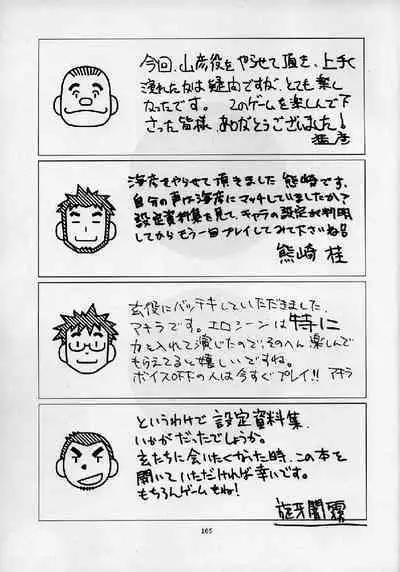 今回、山彦役をやらせて頂き、上手く
演れたかは疑問ですが、とても楽し
かったです。このゲームを楽しんで下
さった皆様、ありがとうございました!
海彦をやらせて頂きました熊崎です。
自分の声は海彦にマッチしていましたか?
設定資料集を見て、キャラの設定が判明
してからもう一回プレイしてみて下さいね
熊崎 桂
玄役にバッテキしていただきました、
アキラです。エロシーンは特に
力を入れて演じたので、そのへん楽しんで
もらえてると嬉しいですね。
ボイスOFFの人は今すぐプレイ!! アキラ
というわけで設定資料集、
いかがだったでしょうか。
玄たちに会いたくなった時、この本を
開いていただければ幸いです。
もちろんゲームもね!
旋牙闇霧
105